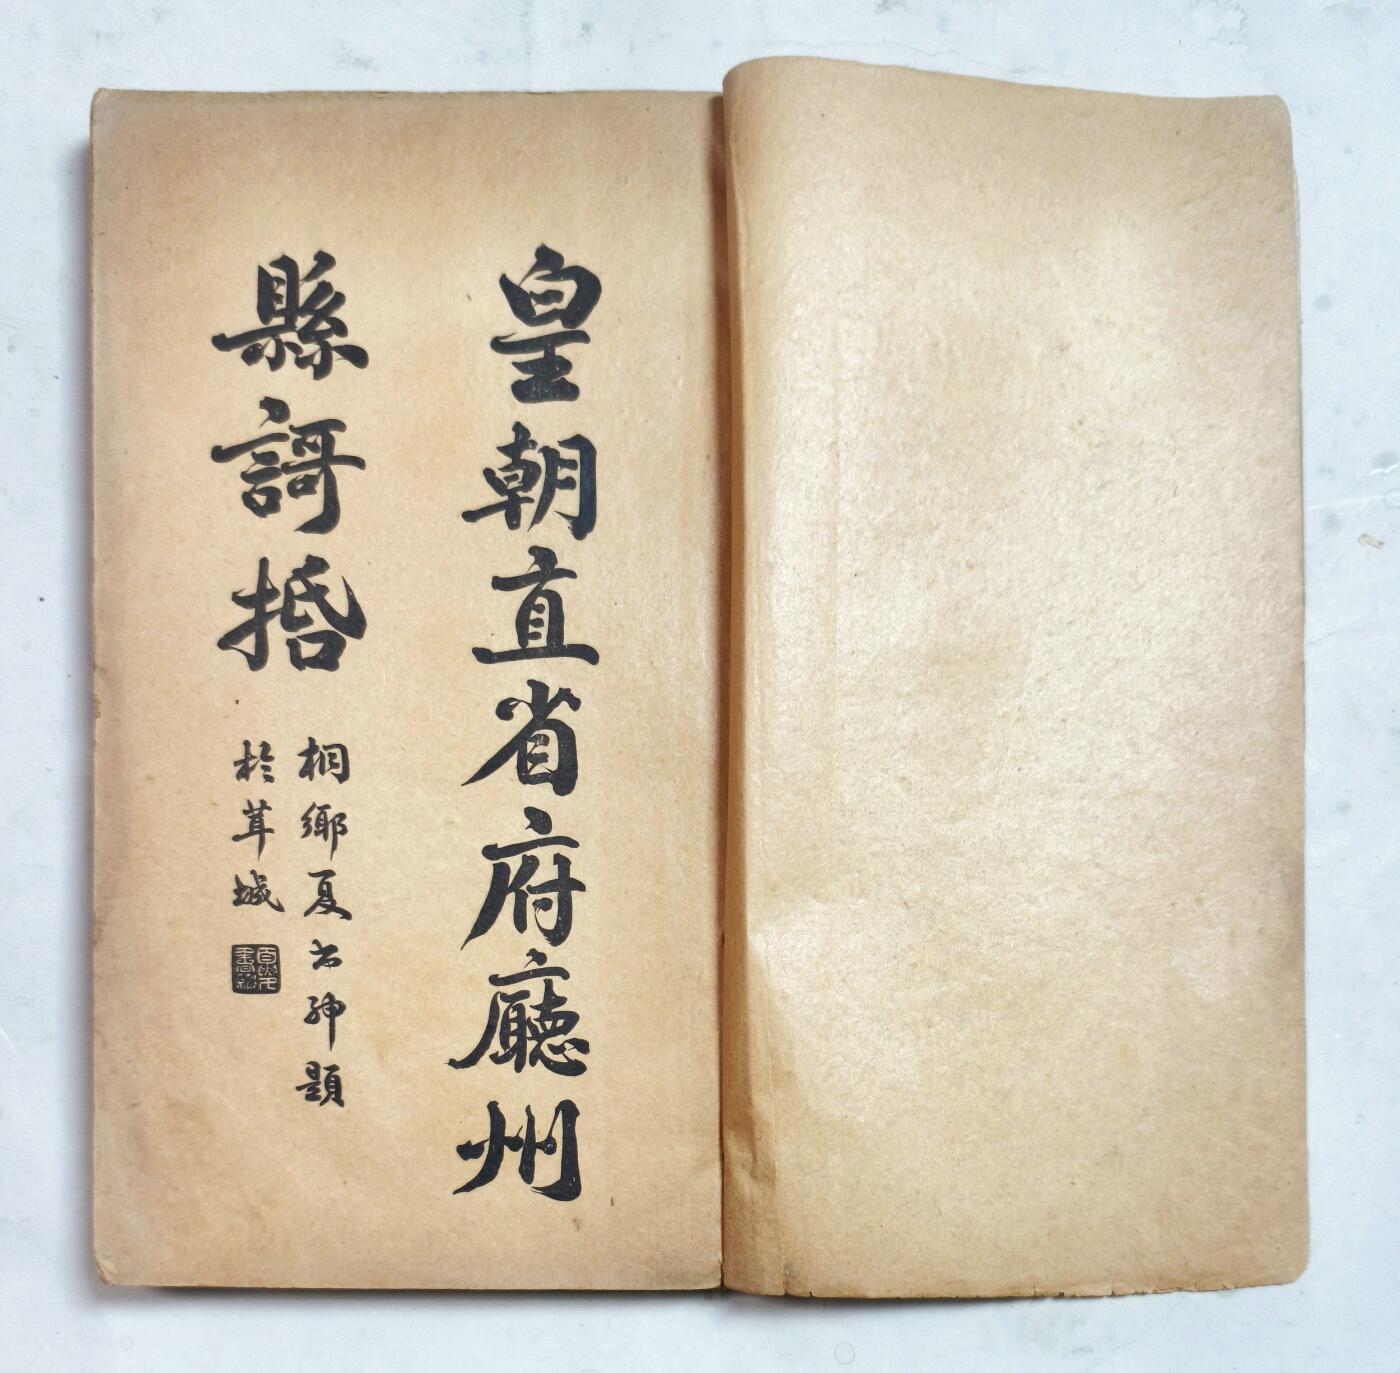 皇朝直省府廳州
縣謌括
桐鄉夏
題
於茸城